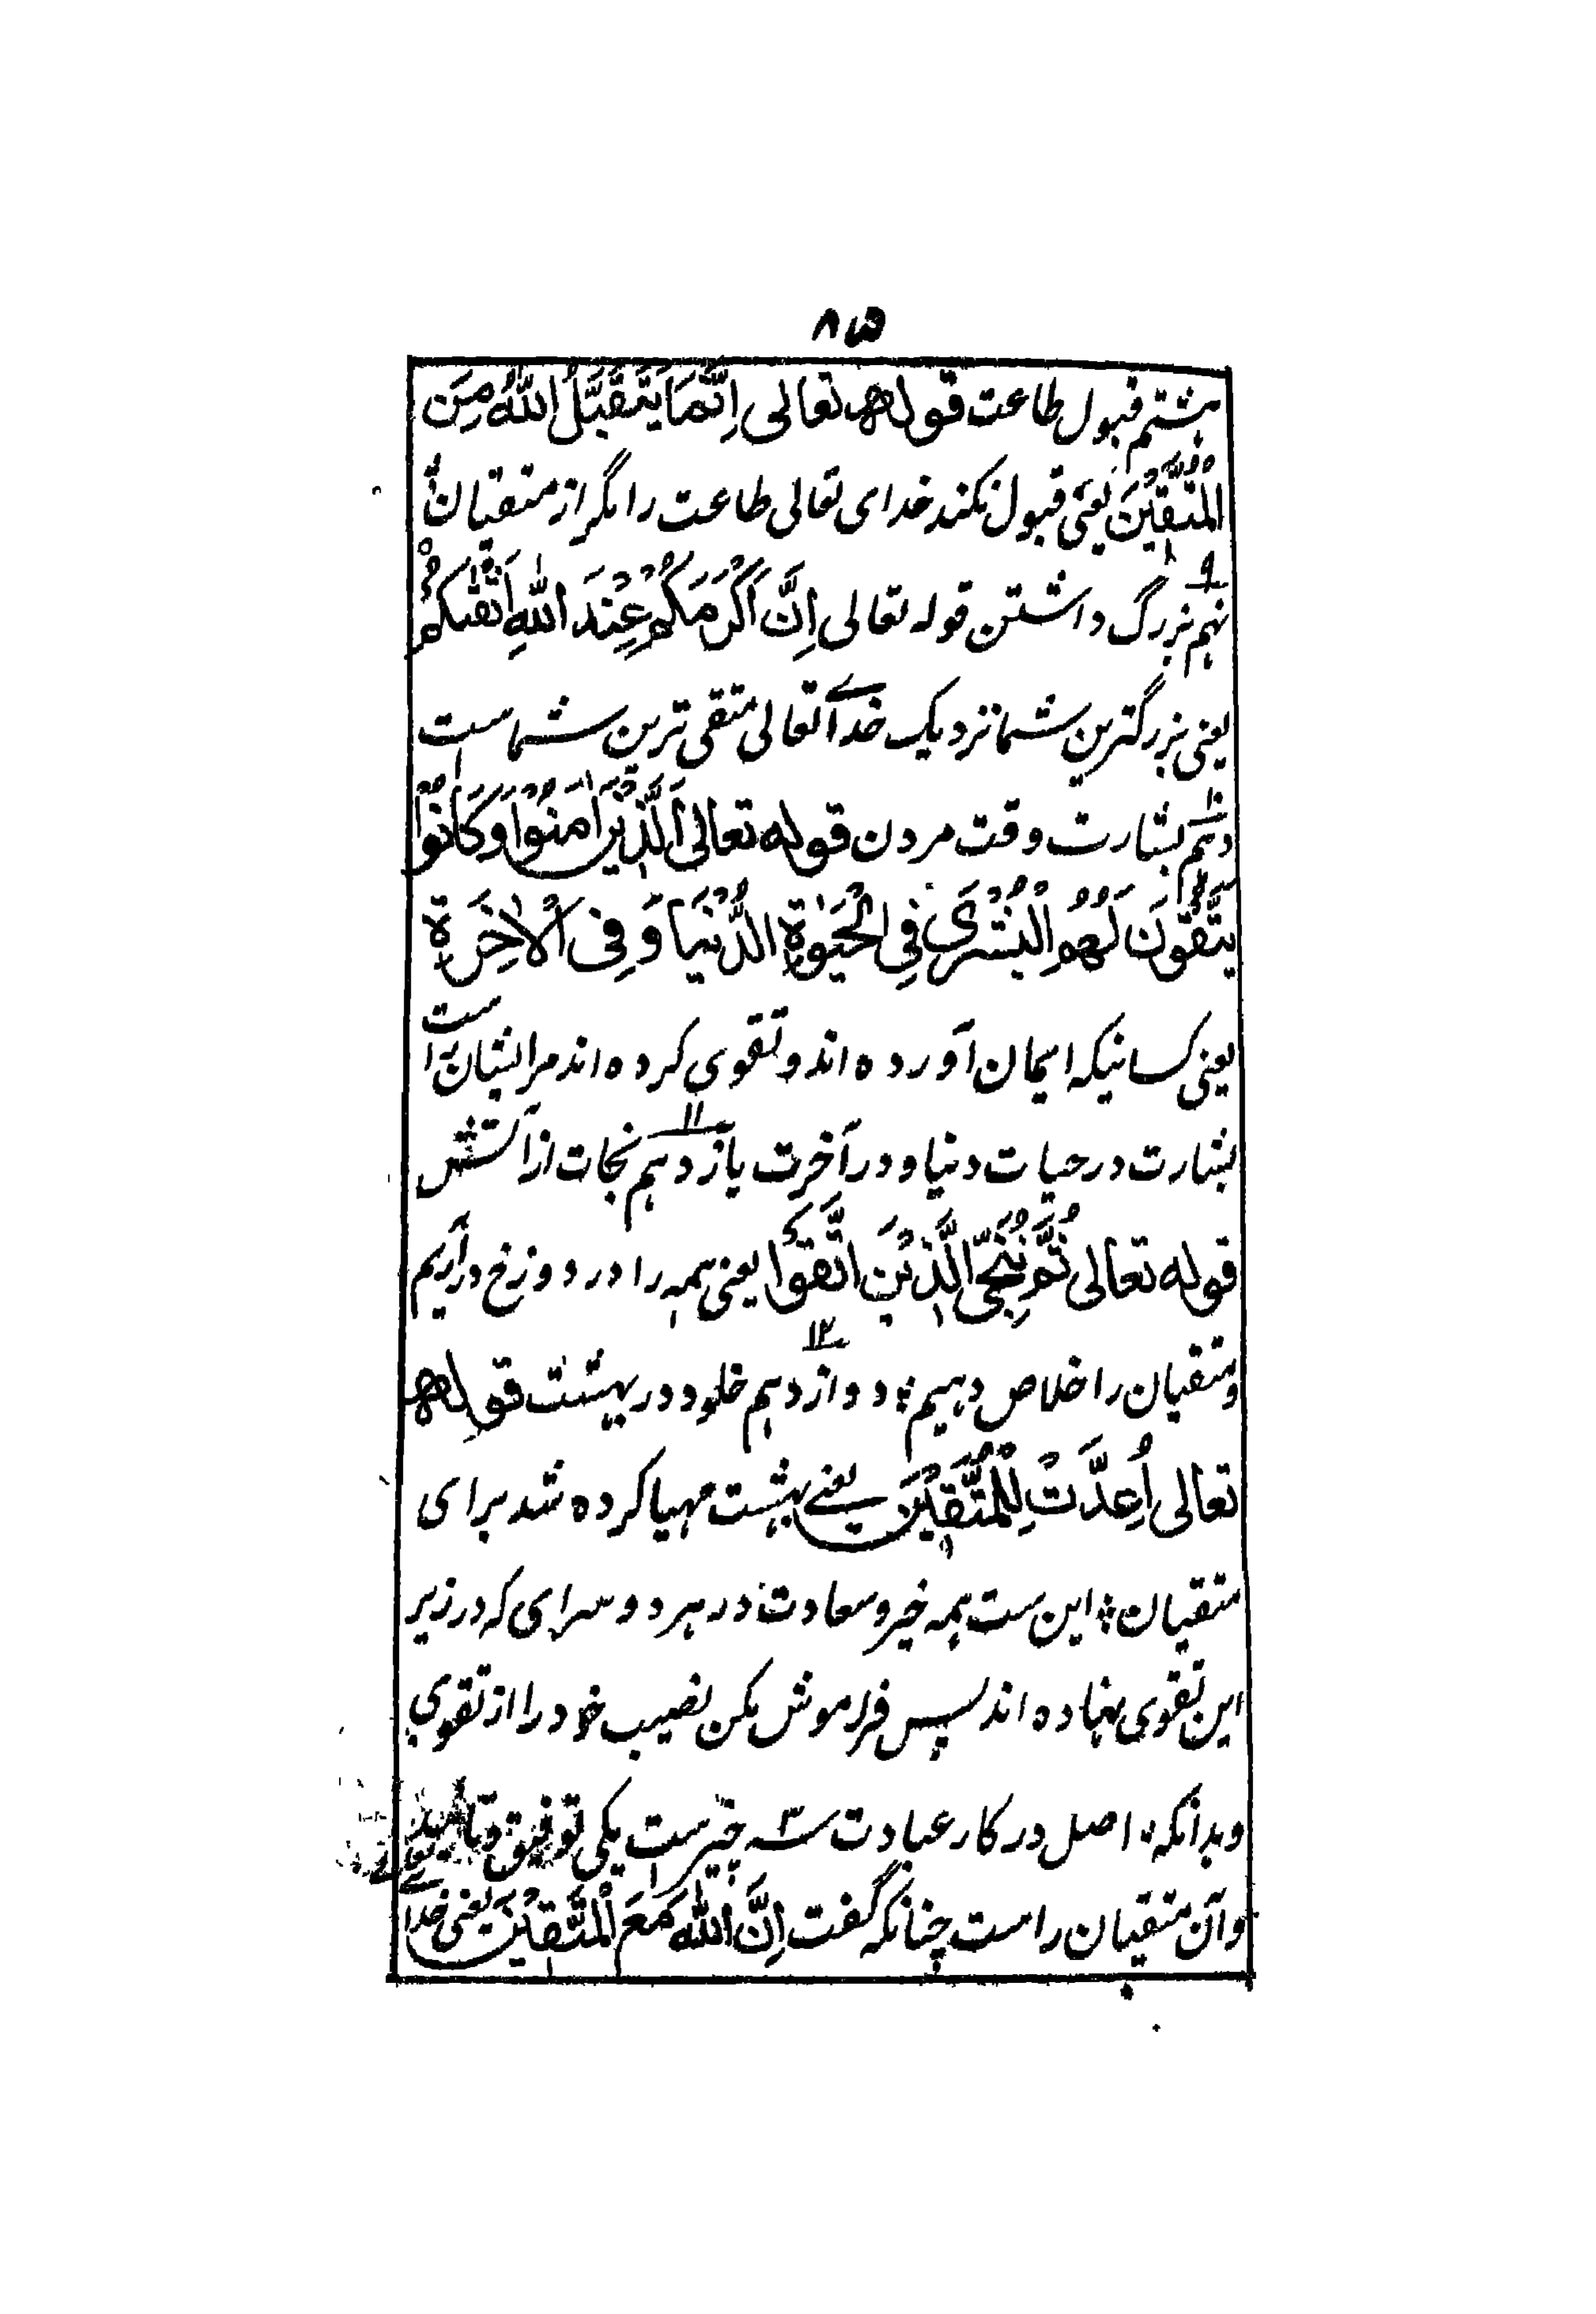 ۸۵
هشتم قبول طاعت قوله تعالی اِنَّمَا یَتَقَبَّلُ اللّٰهُ مِنَ
الْمُتَّقِیْنَ یعنی قبول نکند خدای تعالی طاعت را مگر از متقیان
۹
نهم بزرگ داشتن قوله تعالی اِنَّ اَکْرَمَکُمْ عِنْدَ اللّٰهِ اَتْقٰکُمْ
یعنی بزرگترین شما نزدیک خدائے تعالی متقی ترین شماست
۱۰
دهم بشارت وقت مردن قوله تعالی اَلَّذِیْنَ اٰمَنُوْا وَکَانُوْا
یَتَّقُوْنَ لَهُمُ الْبُشْرٰی فِی الْحَیٰوةِ الدُّنْیَا وَفِی الْاٰخِرَةِ
یعنی کسانیکه ایمان آورده اند و تقوی کرده اند مر ایشان را ست
۱۱
بشارت در حیات دنیا و در آخرت یازدهم نجات از آتش
قوله تعالی ثُمَّ نُنَجِّی الَّذِیْنَ اتَّقَوْا یعنی همه را در دوزخ درآریم
۱۲
و متقیان را خلاص دهیم؛ دوازدهم خلود در بهشت قوله
تعالی اُعِدَّتْ لِلْمُتَّقِیْنَ یعنے بهشت مهیا کرده شد برای
متقیان؛ این ست همه خیر و سعادت در هر دو سرای که در زیر
این تقوی نهاده اند پس فراموش مکن نصیب خود را از تقوی
و بدانکه اصل در کار عبادت سه چیزست یکی توفیق و تائید
و آن متقیان راست چنانکه گفت اِنَّ اللّٰهَ مَعَ الْمُتَّقِیْنَ یعنی خدائے